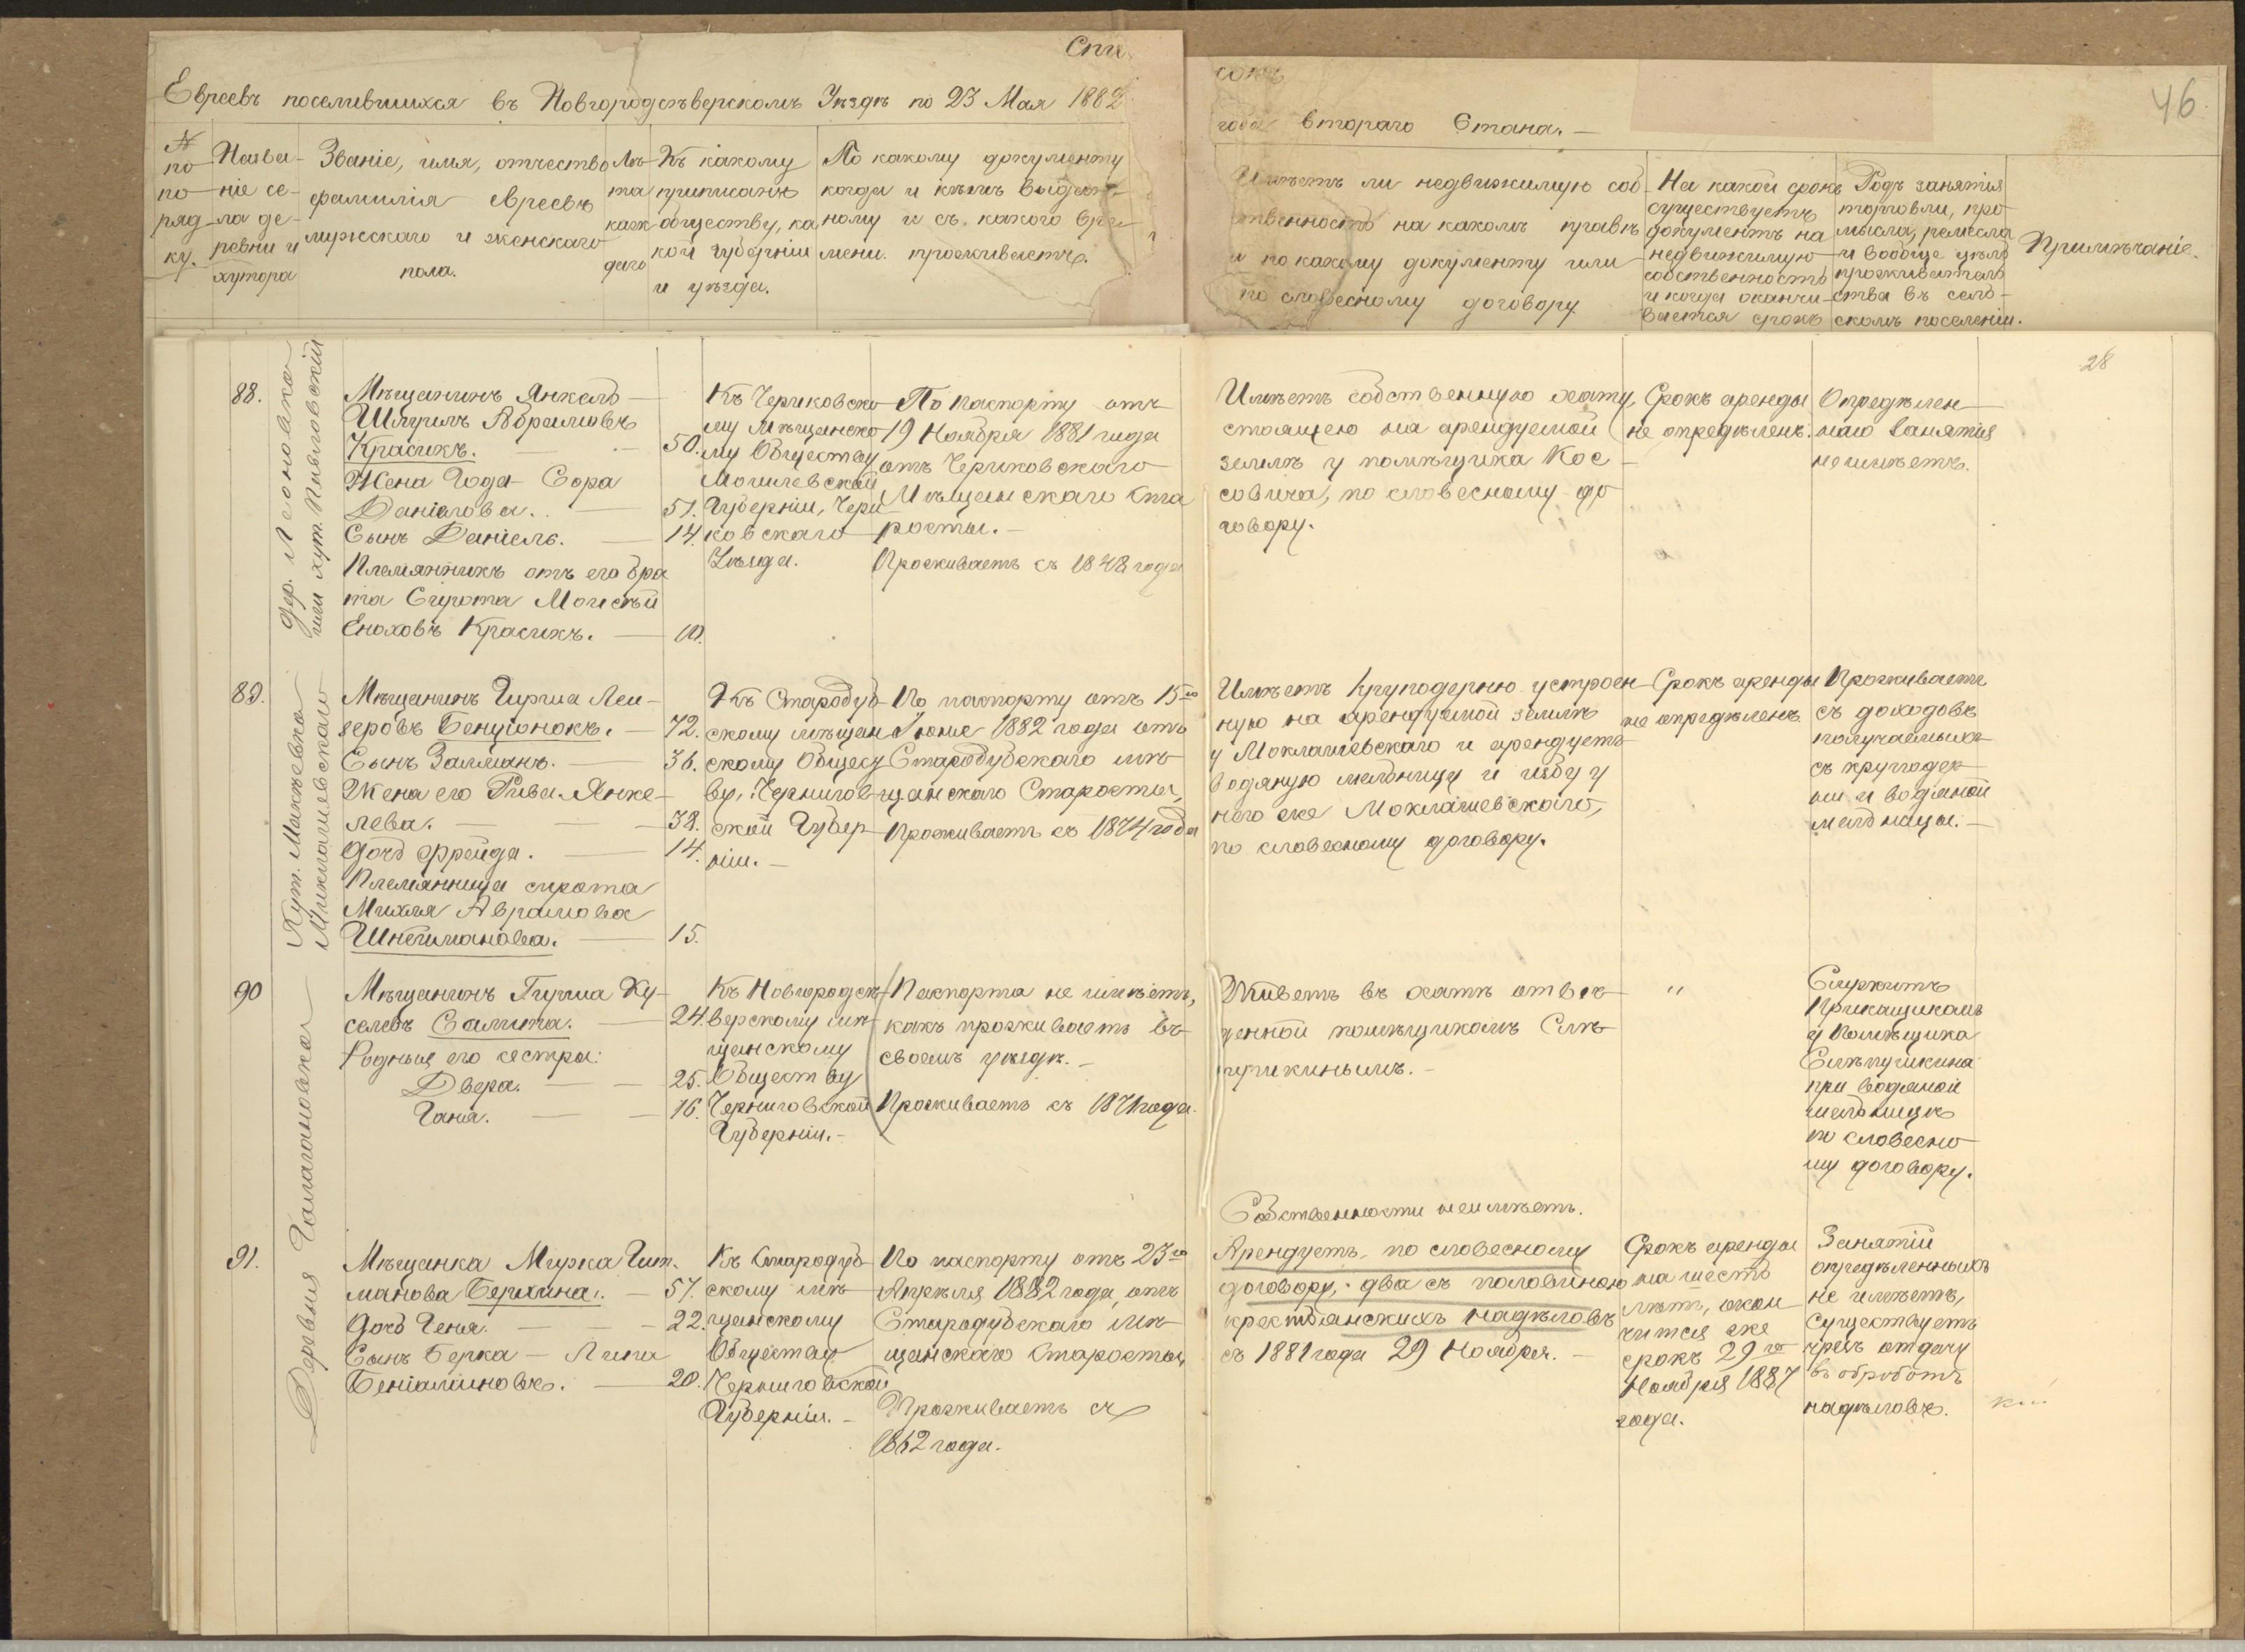 Списокъ
46
Евреевъ поселившихся въ Новгородсѣверскомъ Уѣздѣ по 23 Мая 1882
года втораго Стана. —
№
по
по
ряд
ку.
Назва-
ніе се-
ла де-
ревни и
хутора
Званіе, имя, отчество
фамилія евреевъ
мужскаго и женскаго
пола.
Лѣ-
та
каж
даго
Къ какому
приписанъ
обществу, ка
кой губерніи
и уѣзда.
По какому документу
когда и кѣмъ выдан-
ному и съ какого вре-
мени проживаетъ.
Имѣетъ ли недвижимую соб-
ственность на какомъ правѣ
и по какому документу или
по словесному договору
На какой срокъ
существуетъ
документъ на
недвижимую
собственность
и когда оканчи-
вается срокъ
Родъ занятія
торговли, про
мысла, ремесла
и вообще цѣль
прожиматель
ства въ сель-
скомъ поселеніи.
Примѣчаніе.
28
88.
дер. Леоновка
или хут. Пивговскій
Мѣщанинъ Янкель
Шмуилъ Абрамовъ
Красикъ. — 50.
Жена Года-Сора
Даніалова. — 51.
Сынъ Даніель. — 14.
Племянникъ отъ его бра
та Сирота Моисѣй
Еноховъ Красикъ. — 10.
Къ Чериковско
му Мѣщанско
му Обществу
Могилевской
Губерніи, Чери
ковскаго
Уѣзда.
По паспорту отъ
19 Ноября 1881 года
отъ Чериковскаго
Мѣщанскаго Ста
росты. —
Проживаетъ съ 1848 года
Имѣетъ собственную хату,
стоящею на арендуемой
землѣ у помѣщика Кос
совича, по словесному до
говору.
Срокъ аренды
не опредѣленъ.
Опредѣлен
наго занятія
не имѣетъ.
89.
Хут. Макѣевка
Миклашевскаго
Мѣщанинъ Гирша Леи-
зеровъ Бенціонокъ. — 72.
Сынъ Залманъ. — 36.
Жена его Рива Янке-
лева. — 38.
Дочь Фрейда. — 14.
Племянница сирота
Михля Аврамова
Шнеймanова. — 15.
Къ Стародуб
скому мѣщан
скому Общест
ву, Чернигов
ской Губер
ніи. —
По паспорту отъ 15го
Іюня 1882 года отъ
Стародубскаго мѣ
щанскаго Старосты,
Проживаетъ съ 1874 года
Имѣетъ Круподерню устроен
ную на арендуемой землѣ
у Моклашевскаго и арендуетъ
водяную мельницу и избу у
него же Моклашевскаго,
по словесному договору.
Срокъ аренды
не опредѣленъ.
Проживаетъ
съ доходовъ
получаемыхъ
съ круподер
ни и водяной
мельницы. —
90
Деревня Галагановка
Мѣщанинъ Гирша Ху-
селевъ Салита. — 24.
Родныя его сестры:
Двера. — 25.
Ганя. — 16.
Къ Новгородсѣ
верскому мѣ
щанскому
Обществу
Черниговской
Губерніи. —
Паспорта не имѣетъ,
какъ проживаетъ въ
своемъ уѣздѣ. —
Проживаетъ съ 1871 года.
Живетъ въ хатѣ отве
денной помѣщикомъ Слѣ
пушкинымъ. —
"
Служитъ
Прикащикомъ
у Помѣщика
Слѣпушкина
при водяной
мельницѣ
по словесно
му договору.
91.
Мѣщанка Мирка Гит.
манова Берлина. — 57.
Дочь Геня. — 22.
Сынъ Берка — Липа
Беніаминовъ. — 20.
Къ Стародуб
скому мѣ
щанскому
Обществу
Черниговской
Губерніи. —
По паспорту отъ 23го
Апрѣля 1882 года, отъ
Стародубскаго мѣ
щанскаго Старосты,
Проживаетъ съ
1862 года.
Собственности не имѣетъ.
Арендуетъ, по словесному
договору, два съ половиною
крестьянскихъ надѣловъ
съ 1881 года 29 Ноября. —
Срокъ аренды
на шесть
лѣтъ, окон
чится же
срокъ 29го
Ноября 1887
года.
Занятій
опредѣленныхъ
не имѣетъ,
существуетъ
чрезъ отдачу
въ обработъ
надѣловъ.